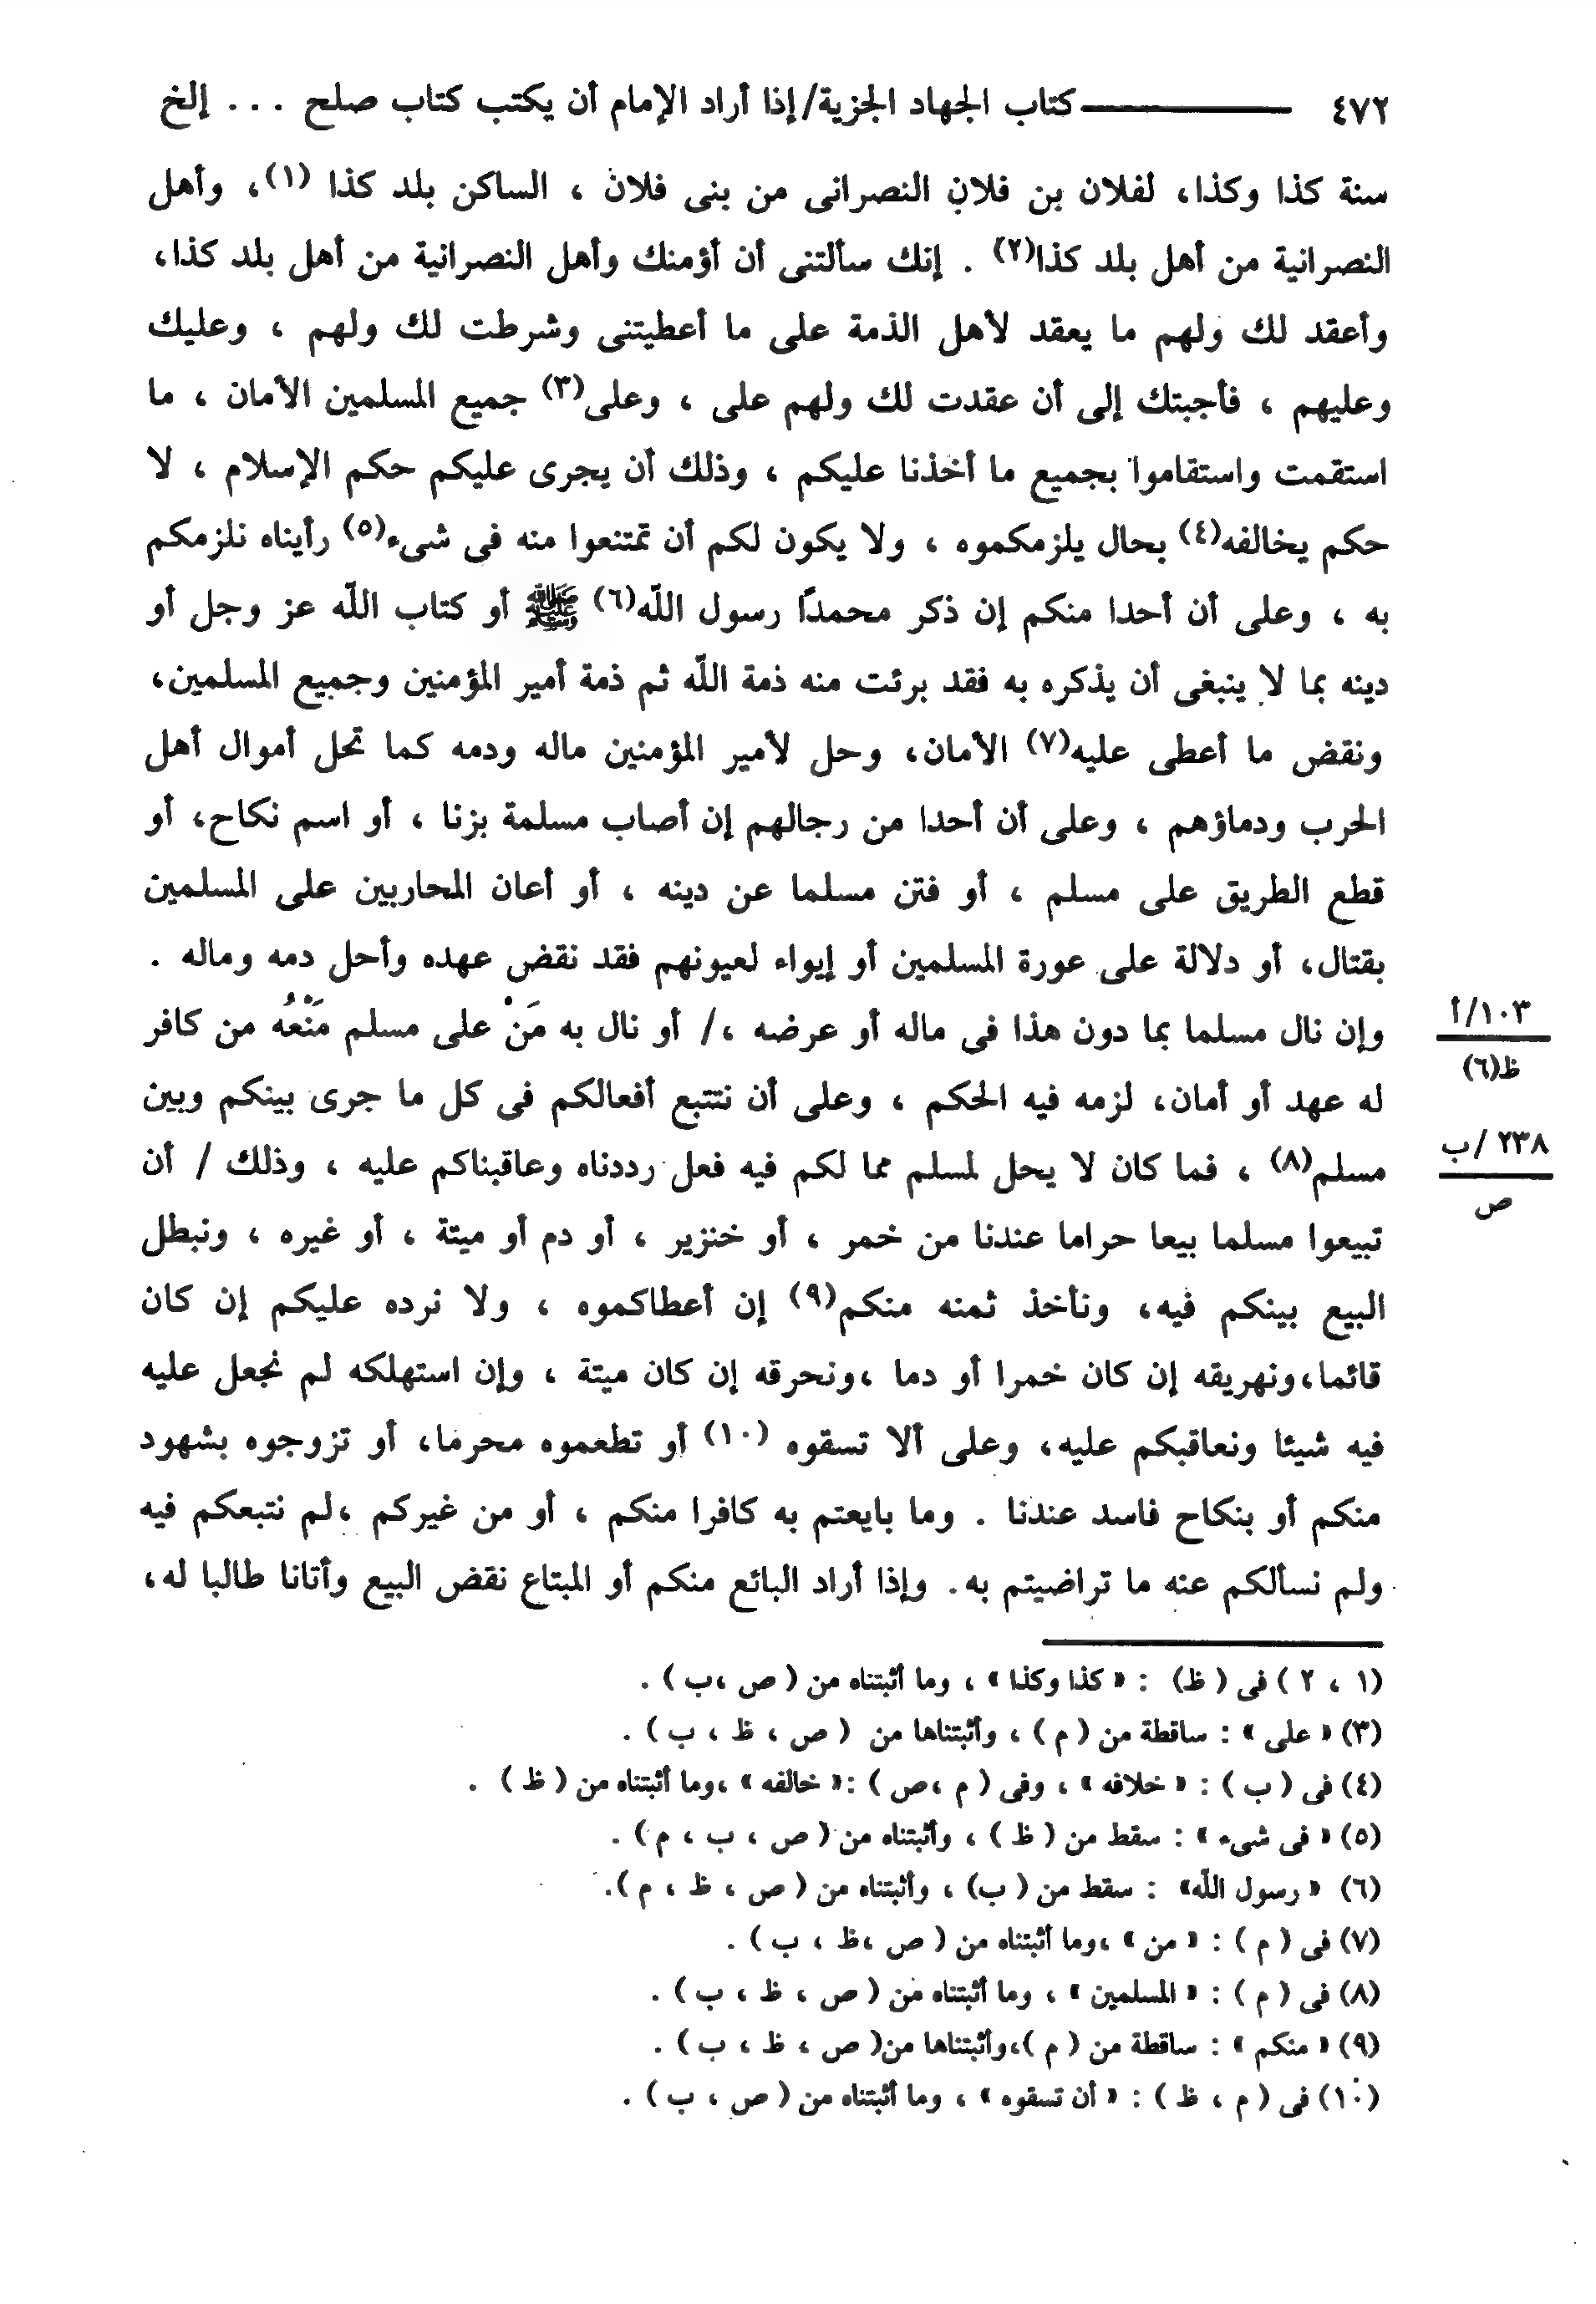 ٤٧٢ ــــــــــــ كتاب الجهاد الجزية/إذا أراد الإمام أن يكتب كتاب صلح ... إلخ
سنة كذا وكذا، لفلان بن فلان النصرانى من بنى فلان ، الساكن بلد كذا (١)، وأهل
النصرانية من أهل بلد كذا(٢) . إنك سألتنى أن أؤمنك وأهل النصرانية من أهل بلد كذا،
وأعقد لك ولهم ما يعقد لأهل الذمة على ما أعطيتنى وشرطت لك ولهم ، وعليك
وعليهم ، فأجبتك إلى أن عقدت لك ولهم على ، وعلى(٣) جميع المسلمين الأمان ، ما
استقمت واستقاموا بجميع ما أخذنا عليكم ، وذلك أن يجرى عليكم حكم الإسلام ، لا
حكم يخالفه(٤) بحال يلزمكموه ، ولا يكون لكم أن تمتنعوا منه فى شىء(٥) رأيناه نلزمكم
به ، وعلى أن أحدا منكم إن ذكر محمدًا رسول اللّه(٦) ﷺ أو كتاب اللّه عز وجل أو
دينه بما لا ينبغى أن يذكره به فقد برئت منه ذمة اللّه ثم ذمة أمير المؤمنين وجميع المسلمين،
ونقض ما أعطى عليه(٧) الأمان، وحل لأمير المؤمنين ماله ودمه كما تحل أموال أهل
الحرب ودماؤهم ، وعلى أن أحدا من رجالهم إن أصاب مسلمة بزنا ، أو اسم نكاح، أو
قطع الطريق على مسلم ، أو فتن مسلما عن دينه ، أو أعان المحاربين على المسلمين
بقتال، أو دلالة على عورة المسلمين أو إيواء لعيونهم فقد نقض عهده وأحل دمه وماله .
وإن نال مسلما بما دون هذا فى ماله أو عرضه ،/ أو نال به مَنْ على مسلم مَنْعُه من كافر
١٠٣/أ
ظ(٦)
له عهد أو أمان، لزمه فيه الحكم ، وعلى أن نتتبع أفعالكم فى كل ما جرى بينكم وبين
مسلم(٨) ، فما كان لا يحل لمسلم مما لكم فيه فعل رددناه وعاقبناكم عليه ، وذلك / أن
٢٣٨ /ب
ص
تبيعوا مسلما بيعا حراما عندنا من خمر ، أو خنزير ، أو دم أو ميتة ، أو غيره ، ونبطل
البيع بينكم فيه، ونأخذ ثمنه منكم(٩) إن أعطاكموه ، ولا نرده عليكم إن كان
قائما،ونهريقه إن كان خمرا أو دما ،ونحرقه إن كان ميتة ، وإن استهلكه لم نجعل عليه
فيه شيئا ونعاقبكم عليه، وعلى ألا تسقوه (١٠) أو تطعموه محرما، أو تزوجوه بشهود
منكم أو بنكاح فاسد عندنا . وما بايعتم به كافرا منكم ، أو من غيركم ،لم نتبعكم فيه
ولم نسألكم عنه ما تراضيتم به. وإذا أراد البائع منكم أو المبتاع نقض البيع وأتانا طالبا له،
(١ ، ٢ ) فى ( ظ) : « كذا وكذا » ، وما أثبتناه من ( ص ،ب ) .
(٣) « على » : ساقطة من ( م ) ، وأثبتناها من ( ص ، ظ ، ب ) .
(٤) فى ( ب ) : « خلافه » ، وفى ( م ،ص ) :« خالفه » ،وما أثبتناه من ( ظ ) .
(٥) « فى شىء » : سقط من ( ظ ) ، وأثبتناه من ( ص ، ب ، م ) .
(٦) « رسول اللّه» : سقط من ( ب) ، وأثبتناه من ( ص ، ظ ، م ).
(٧) فى ( م ) : « من » ،وما أثبتناه من ( ص ،ظ ، ب ) .
(٨) فى ( م ) : « المسلمين » ، وما أثبتناه من ( ص ، ظ ، ب ) .
(٩) « منكم » : ساقطة من ( م )،وأثبتناها من( ص ، ظ ، ب ) .
(١٠) فى ( م ، ظ ) : « أن تسقوه » ، وما أثبتناه من ( ص ، ب ) .